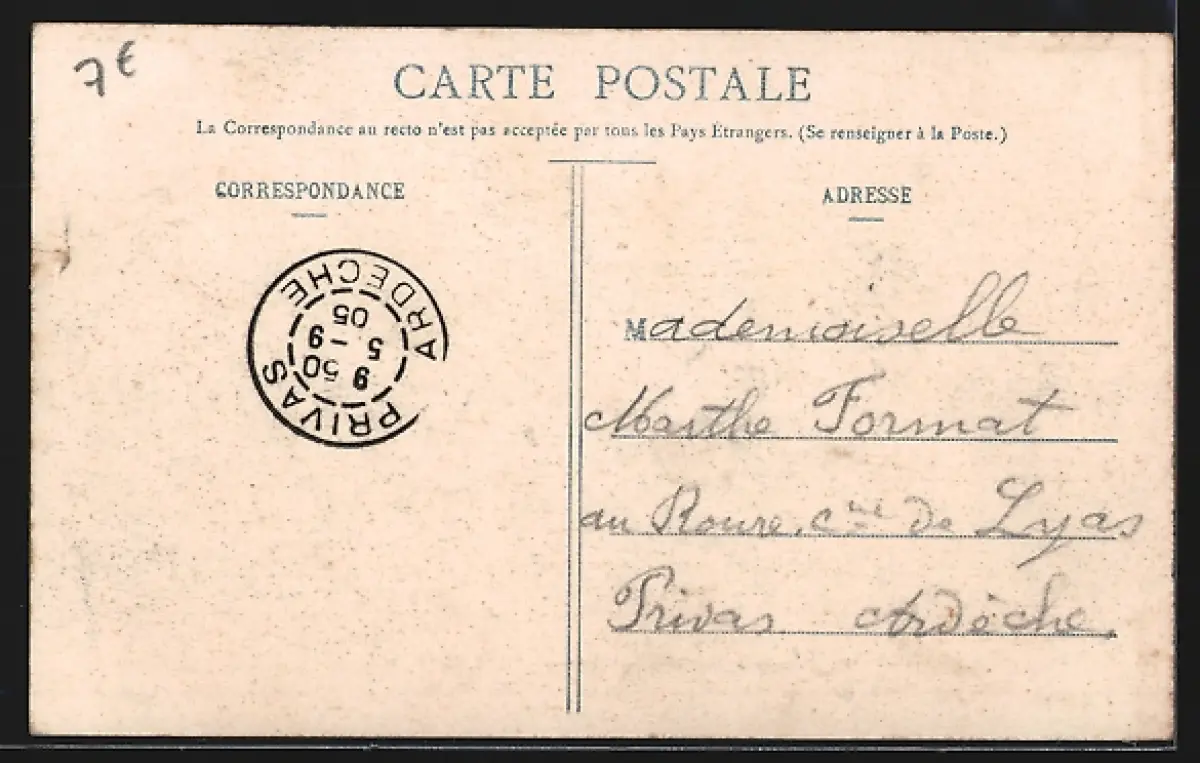 7€
CARTE POSTALE
La Correspondance au recto n'est pas acceptée par tous les Pays Étrangers. (Se renseigner à la Poste.)
CORRESPONDANCE
PRIVAS
9 50
5 - 9
05
ARDECHE
ADRESSE
Mademoiselle
Marthe Format
au Roure, Cne de Lyas
Privas Ardèche.